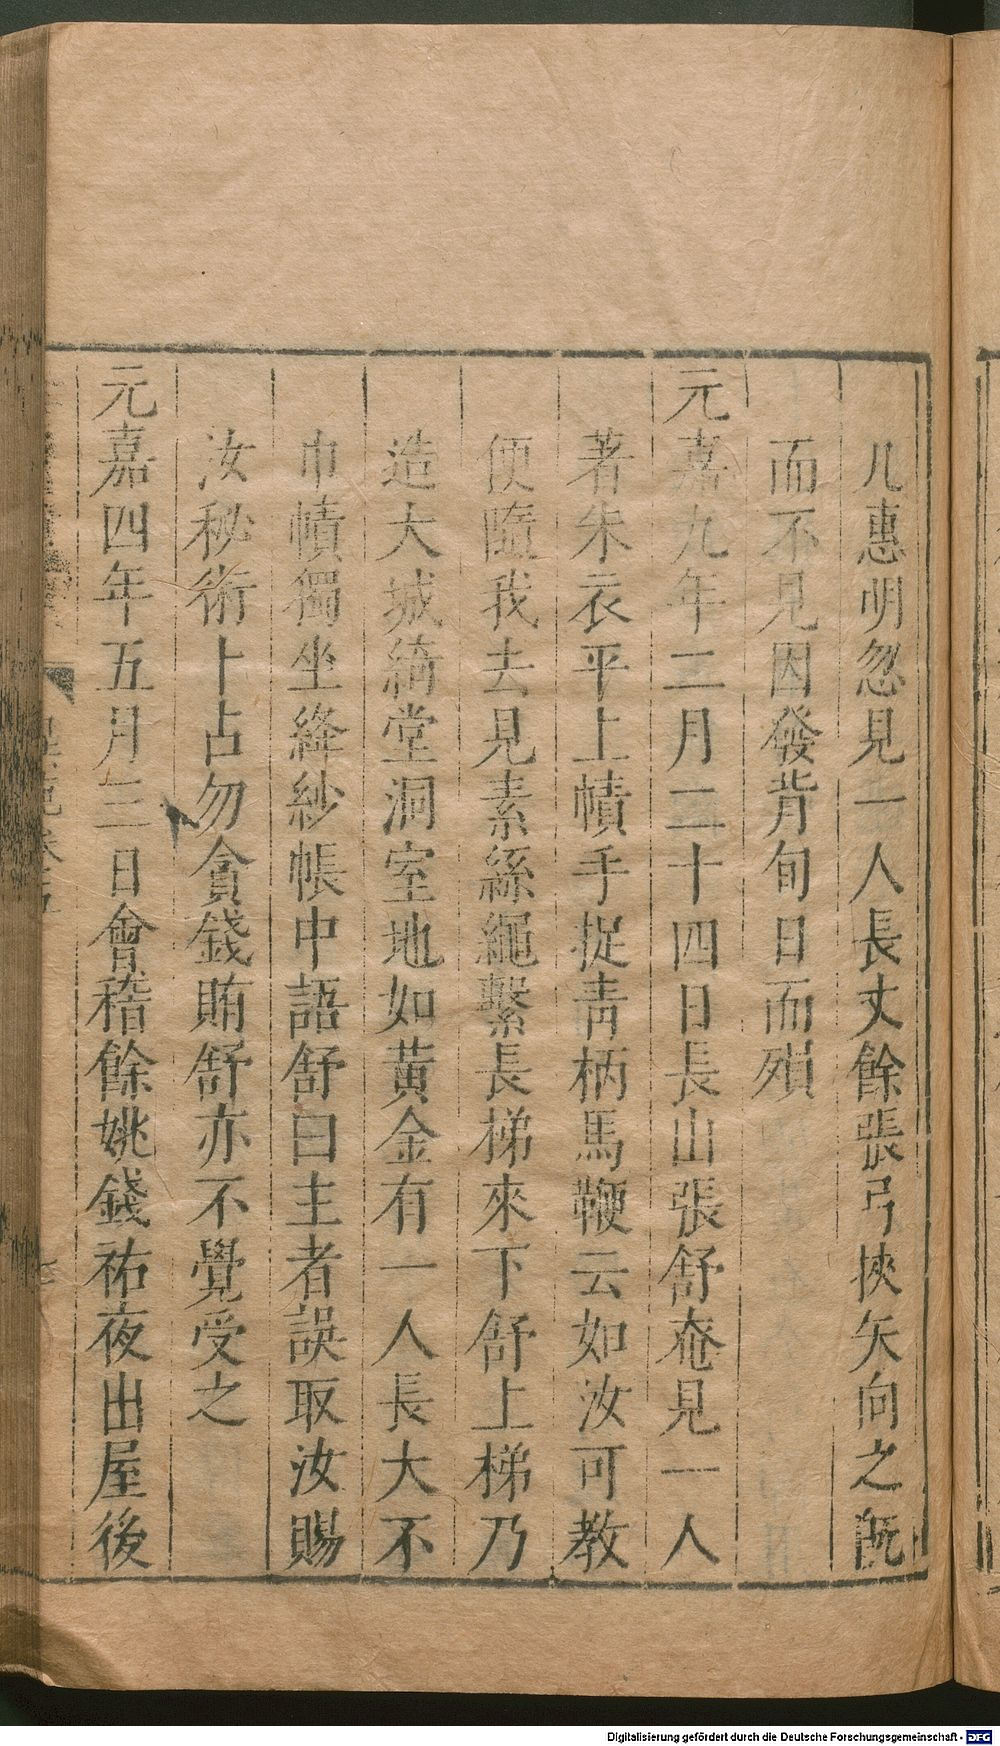 儿惠明忽見一人長丈餘張弓挾矢向之旣
而不見因發背旬日而殞
元嘉九年二月二十四日長山張舒奄見一人
著朱衣平上幘手捉靑柄馬鞭云如汝可教
便隨我去見素絲繩繫長梯來下舒上梯乃
造大城綺堂洞室地如黃金有一人長大不
巾幘獨坐絳紗帳中語舒曰主者誤取汝賜
汝秘術卜占勿貪錢賄舒亦不覺受之
元嘉四年五月三日會稽餘姚錢祐夜出屋後
Digitalisierung gefördert durch die Deutsche Forschungsgemeinschaft - DFG